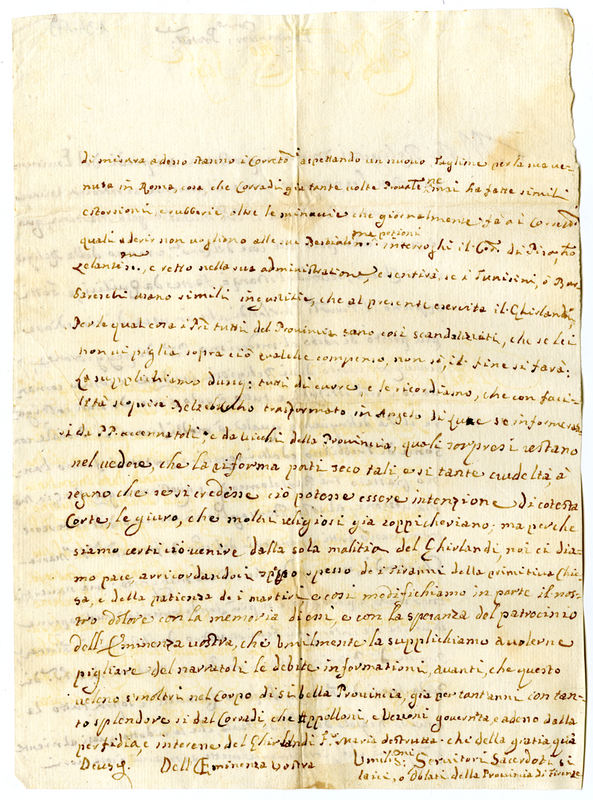 di misura adeno stanno i Corretti aspettando un nuovo Taglione per la sua ve-
nuta in Roma, cosa che Corradi già tante volte Provale ne mai ha fatte simili
estorsioni, e rubberie, oltre le minaccie che giornalmente fà a i
quali aderir non vogliono alle sue interroghi il di
Zelantissmo, e retto nella sua administratione, e sentirà, se i Tunisini, ò Bar-
bareschi usano simili ingiustitie, che al presente esercita il Ghirlandi,
Per le qual cosa i PPri tutti del Provincia sano così scandalizati, che se lei
non vi piglia sopra ciò qualche compenso, non sò, il fine si farà:
La supplichiamo dunq: tutti di cuore, e le ricordiamo, che con faci-
lità scoprire Belzebucho trasformato in Angelo di Luce se informerà
si da PP. accennatoli, e da Vecchi della Provincia, quali sorpresi restano
nel vedere, che la riforma porti seco tali e si tante crudeltà à
segno che se si credesse ciò potesse essere intenzione di cotesta
Corte, le giuro, che molti religiosi già zoppicheriano; ma perche
siamo certi ciò venire dalla sola malitia del Ghirlandi, noi ci dia-
mo pace, arricordandoci spesso de i Tiranni della primitiva Chie-
sa, e della patienza de i martiri e così modifichiamo in parte il nos-
tro dolore con la memoria di essi, e con la speranza del patrocinio
dell'Eminenza vostra, che Umilmente la supplichiamo a volerne
pigliare del narratoli le debite informationi, avanti, che questo
veleno s'inoltri nel Corpo di sì bella Provincia, già per tant'anni con tan-
to splendore si dal Corradi, che Appolloni, e Veroni governata, e adeno dalla
perfidia, e interesse del Ghirlandi destrutta. che della gratia quà
Deus &. Dell'Eminenza Vostra Umilissmi Servitori Sacerdoti, si
laici, o Oblati della Provincia di Firenze